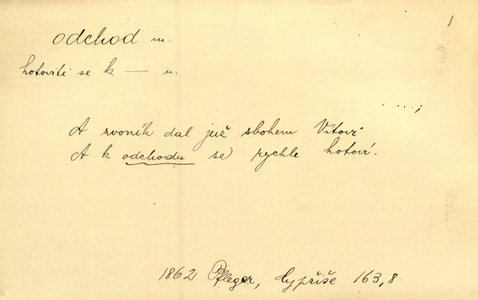 1
odchod m.
hotoviti se k — u.
. . . . ;
A zvoník dal již sbohem Vítovi
A k odchodu se rychle hotoví.
1862 Pfleger, Cypřiše 163,8.